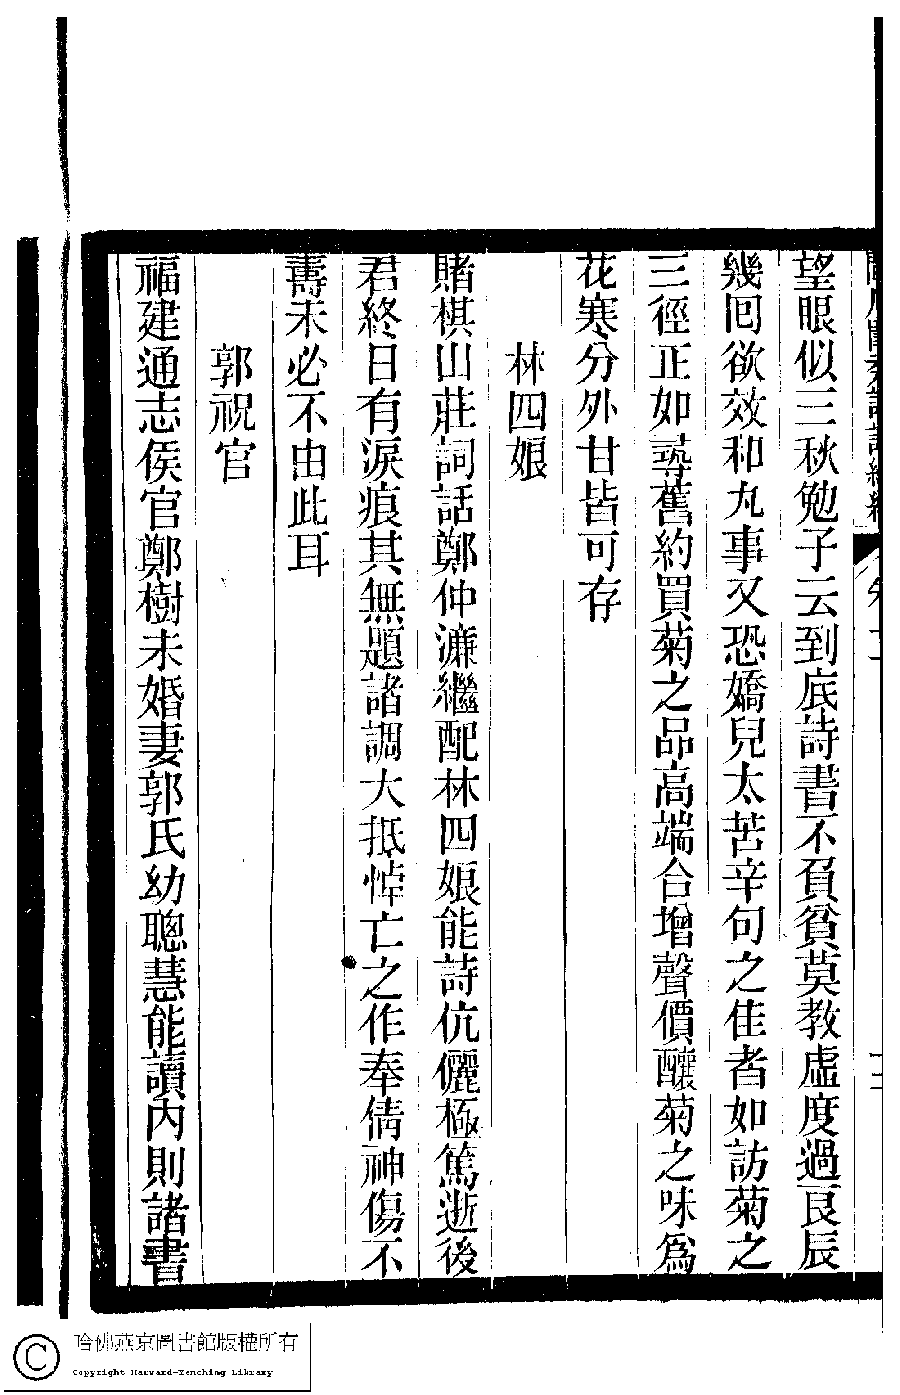 望眼似三秋勉子云到底詩書不負貧莫教虛度過良辰
幾囘欲效和丸事又恐嬌兒太苦辛句之佳者如訪菊之
三徑正如尋舊約買菊之品高端合增聲價釀菊之味爲
花寒分外甘皆可存
林四娘
賭棋山莊詞話鄭仲濂繼配林四娘能詩伉儷極篤逝後
君終日有淚痕其無題諸調大抵悼亡之作奉倩神傷不
壽未必不由此耳
郭祝官
福建通志侯官鄭樹未婚妻郭氏幼聰慧能讀內則諸書
哈佛燕京圖書館版權所有
Copyright Harvard-Yenching Library